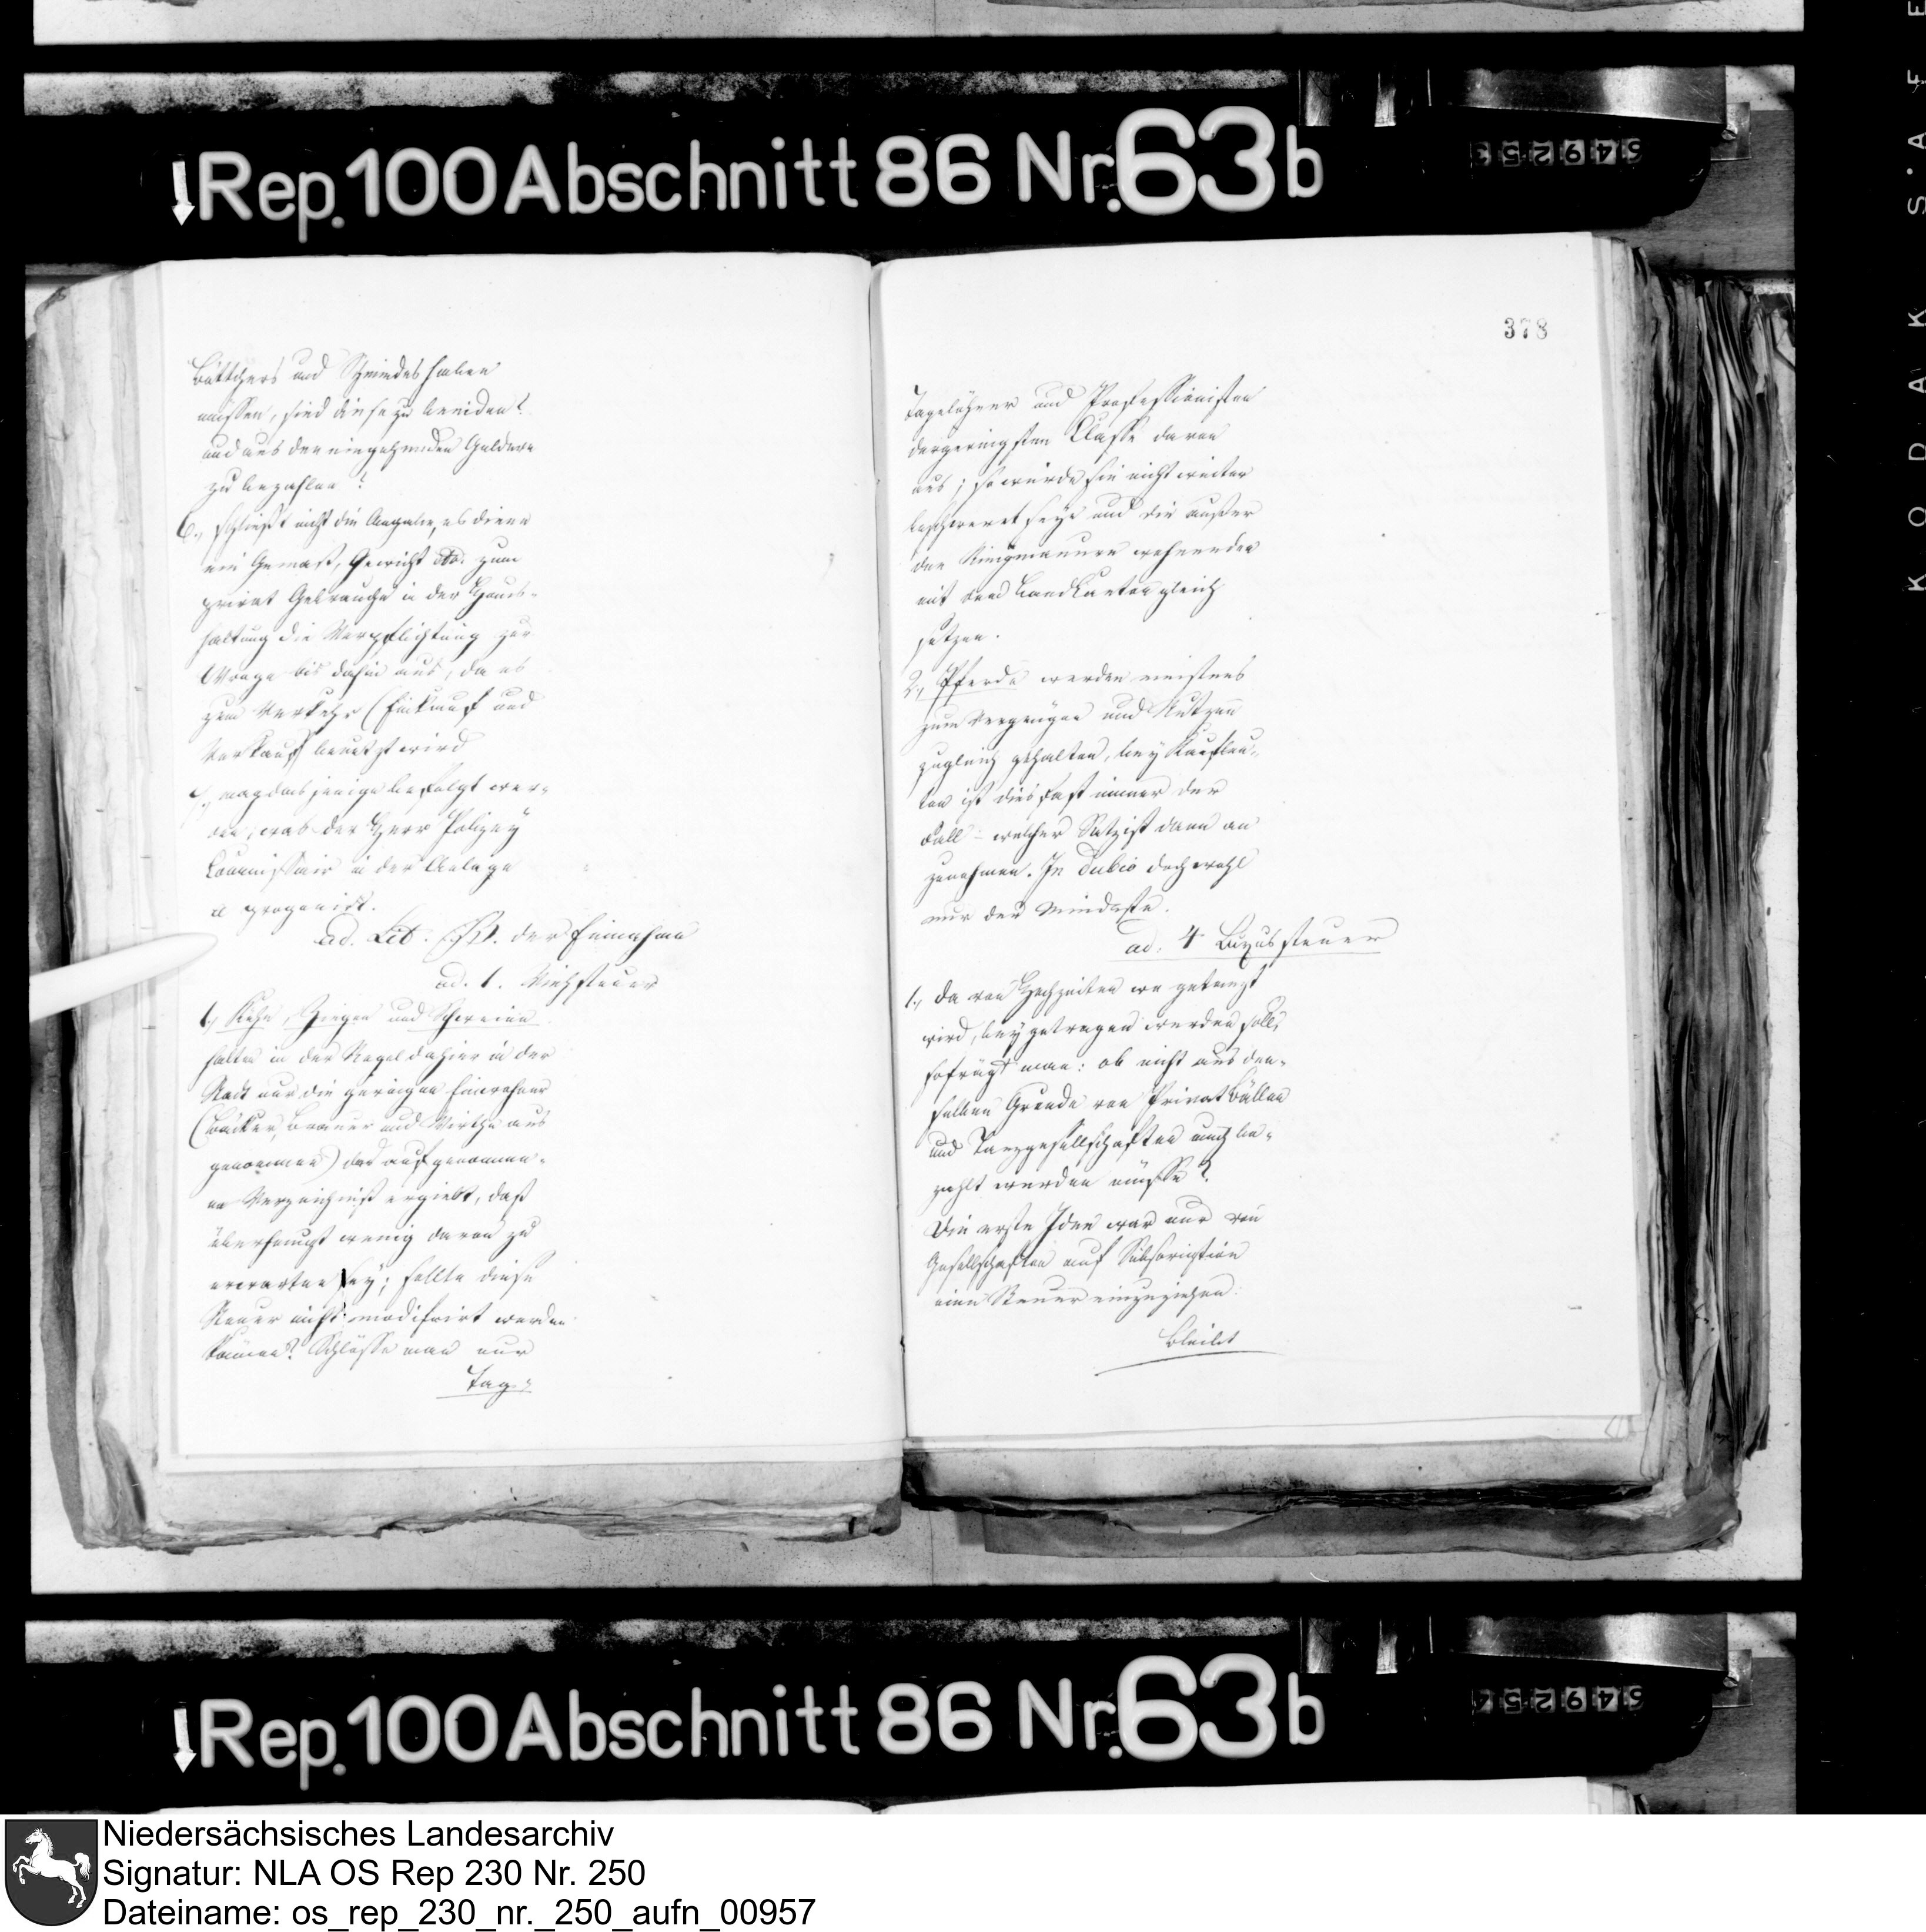 Rep. 100 Abschnitt 86 Nr. 63b
Böttchers und Schmiedes haben
müssen, sind diese zu beeiden?
und aus den eingehenden Geldern
zu bezahlen?
6., schließt nicht die Angabe, es diene
ein Gemäß, Gewicht etc. zum
privat Gebrauche in der Haus-
haltung die Verpflichtung zur
Wroge bis dahin aus, da es
zum Verkehr (Einkauf und
Verkauf) benutzt wird
7., mag dasjenige befolgt wer-
den, was der Herr Polizey
Commissair in der Anlage
a proponirt.
ad. Lit. der Einnahme
ad. 1. Viehsteuer
1., Kühe, Ziegen und Schweine
halten in der Regel dahier in der
Stadt nur die geringen Einwohner
(Bäcker, Brauer und Wirthe aus
genommen) das aufgenomme-
ne Verzeichniß ergiebt, daß
überhaupt wenig davon zu
erwarten sey; sollte diese
Steuer nicht modificirt werden
können? Schlösse man nur
Tag-
378
Tagelöhner und Professionisten
der geringsten Classe davon
aus; so würde sie nicht weiter
beschweret seyn und die außer
den Ringmauern wohnenden
mit den Landleuten gleich
setzen.
2., Pferde werden meistens
zum Vergnügen und Nutzen
zugleich gehalten, bey Kaufleu-
ten ist dies fast immer der
Fall - welcher Satz ist dann an
zunehmen. In dubio doch wohl
nur der Mindeste.
ad. 4 Luxussteuer
1., Da von Hochzeiten wo getanzt
wird, beygetragen werden soll,
so frägt man: ob nicht aus dem-
selben Grunde von Privat Bällen
und Tanzgesellschaften auch be-
zahlt werden müsse?
Die erste Idee war nur von
Gesellschaften auf Subscription
eine Steuer einzuziehen.
Bleibt
Rep. 100 Abschnitt 86 Nr. 63b
KODAK SAFE
Niedersächsisches Landesarchiv
Signatur: NLA OS Rep 230 Nr. 250
Dateiname: os_rep_230_nr._250_aufn_00957